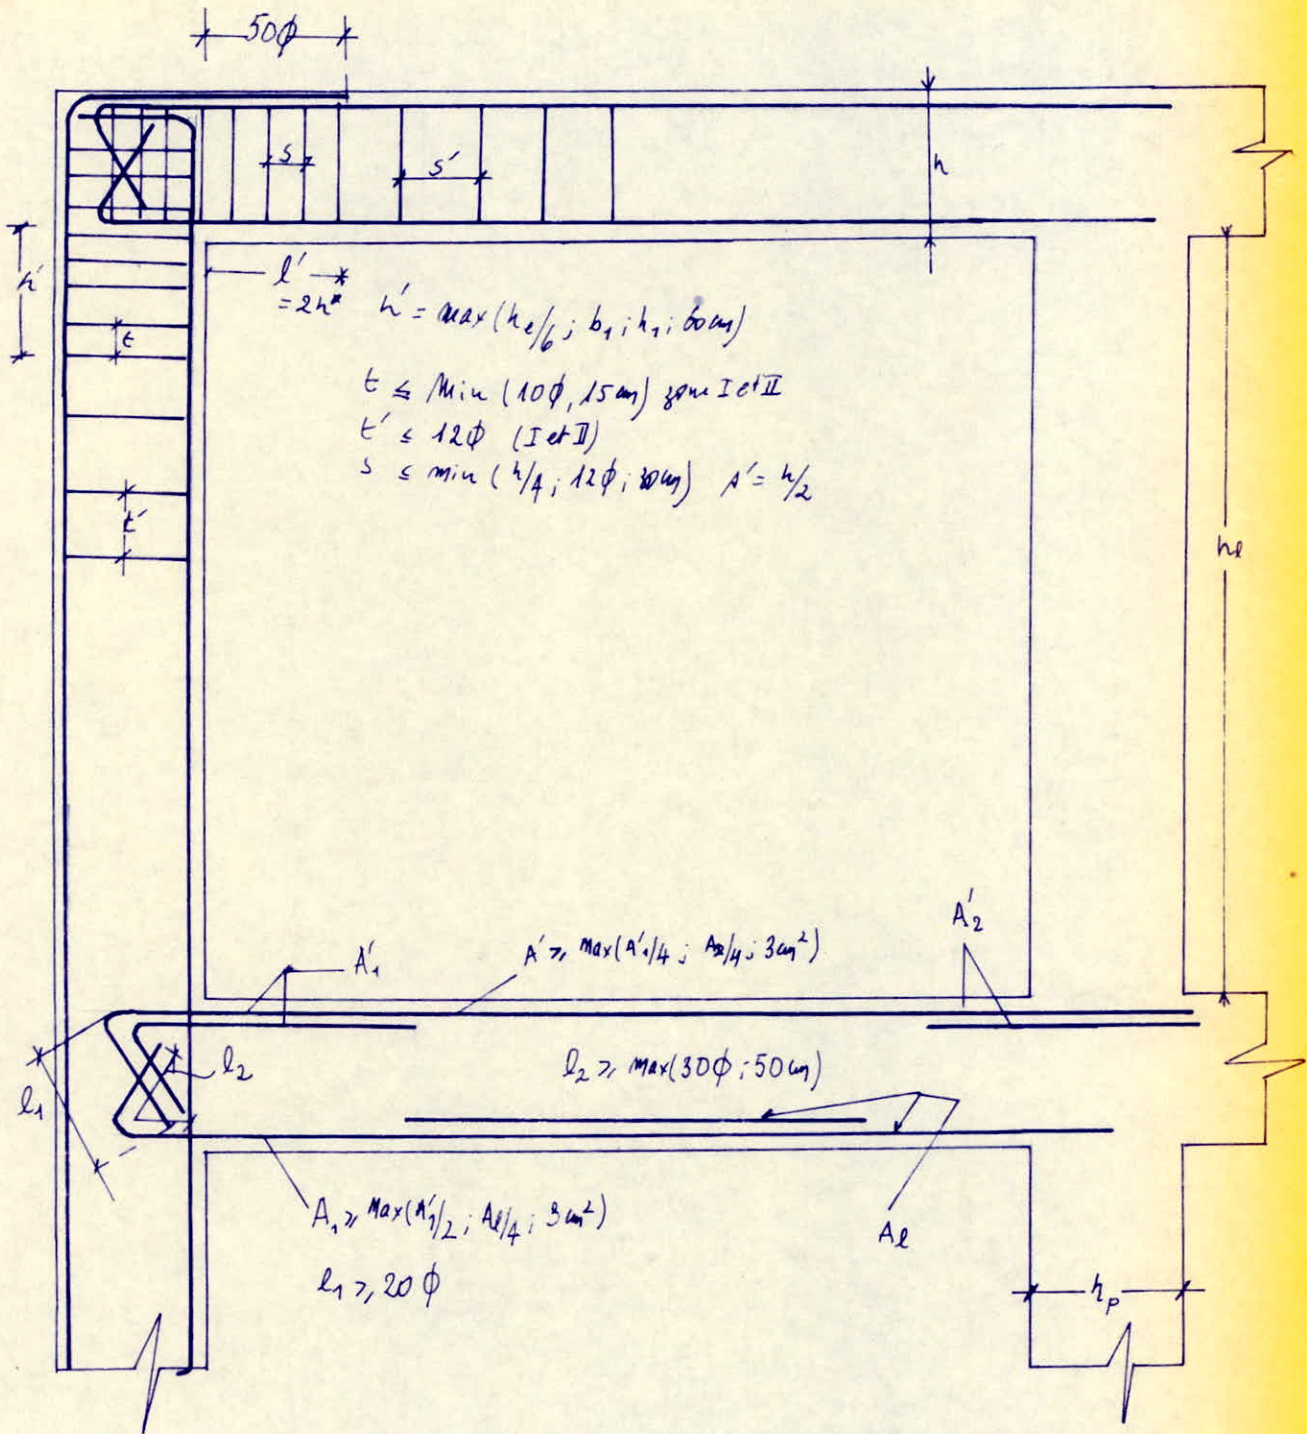 50ϕ
s
s'
h
h'
l'
= 2h
h' = max(he/6 ; b₁ ; h₁ ; 60 cm)
t
t ≤ Min (10ϕ, 15 cm) zone I et II
t' ≤ 12ϕ (I et II)
s ≤ min (h/4 ; 12ϕ ; 30 cm) s' = h/2
t'
he
A'₂
A'₁
A' ≥ max(A'₁/4 ; A₂/4 ; 3 cm²)
l₂
l₂ ≥ max(30ϕ ; 50 cm)
l₁
A₁ ≥ Max(A'₁/2 ; Aℓ/4 ; 3 cm²)
Aℓ
l₁ ≥ 20 ϕ
hp